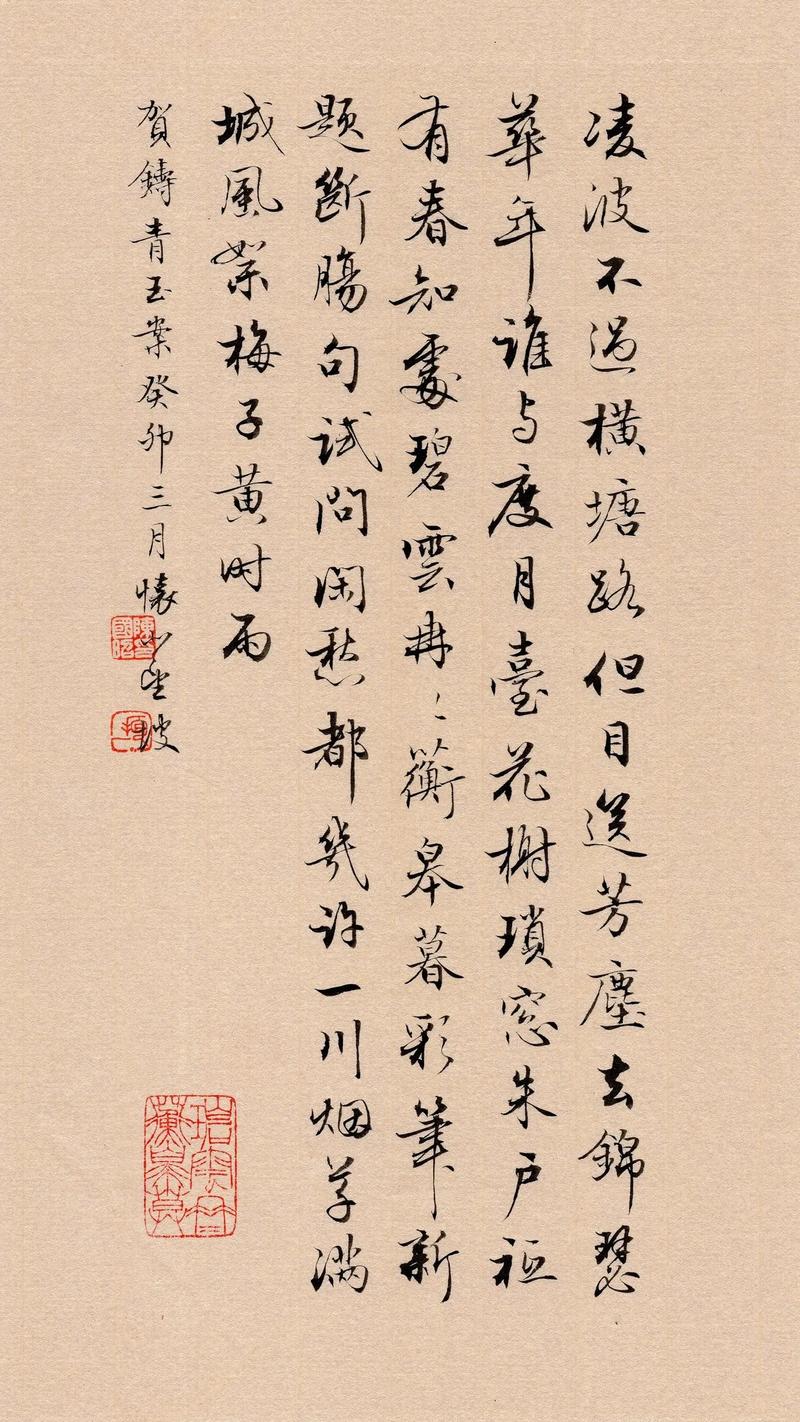 凌波不過橫塘路但目送芳塵去錦瑟
華年誰与度月臺花榭瑣窓朱户祗
有春知處碧雲冉〻蘅皋暮彩筆新
題斷腸句試問閑愁都幾許一川烟草滿
城風絮梅子黄时雨
賀鑄青玉案癸卯三月懷